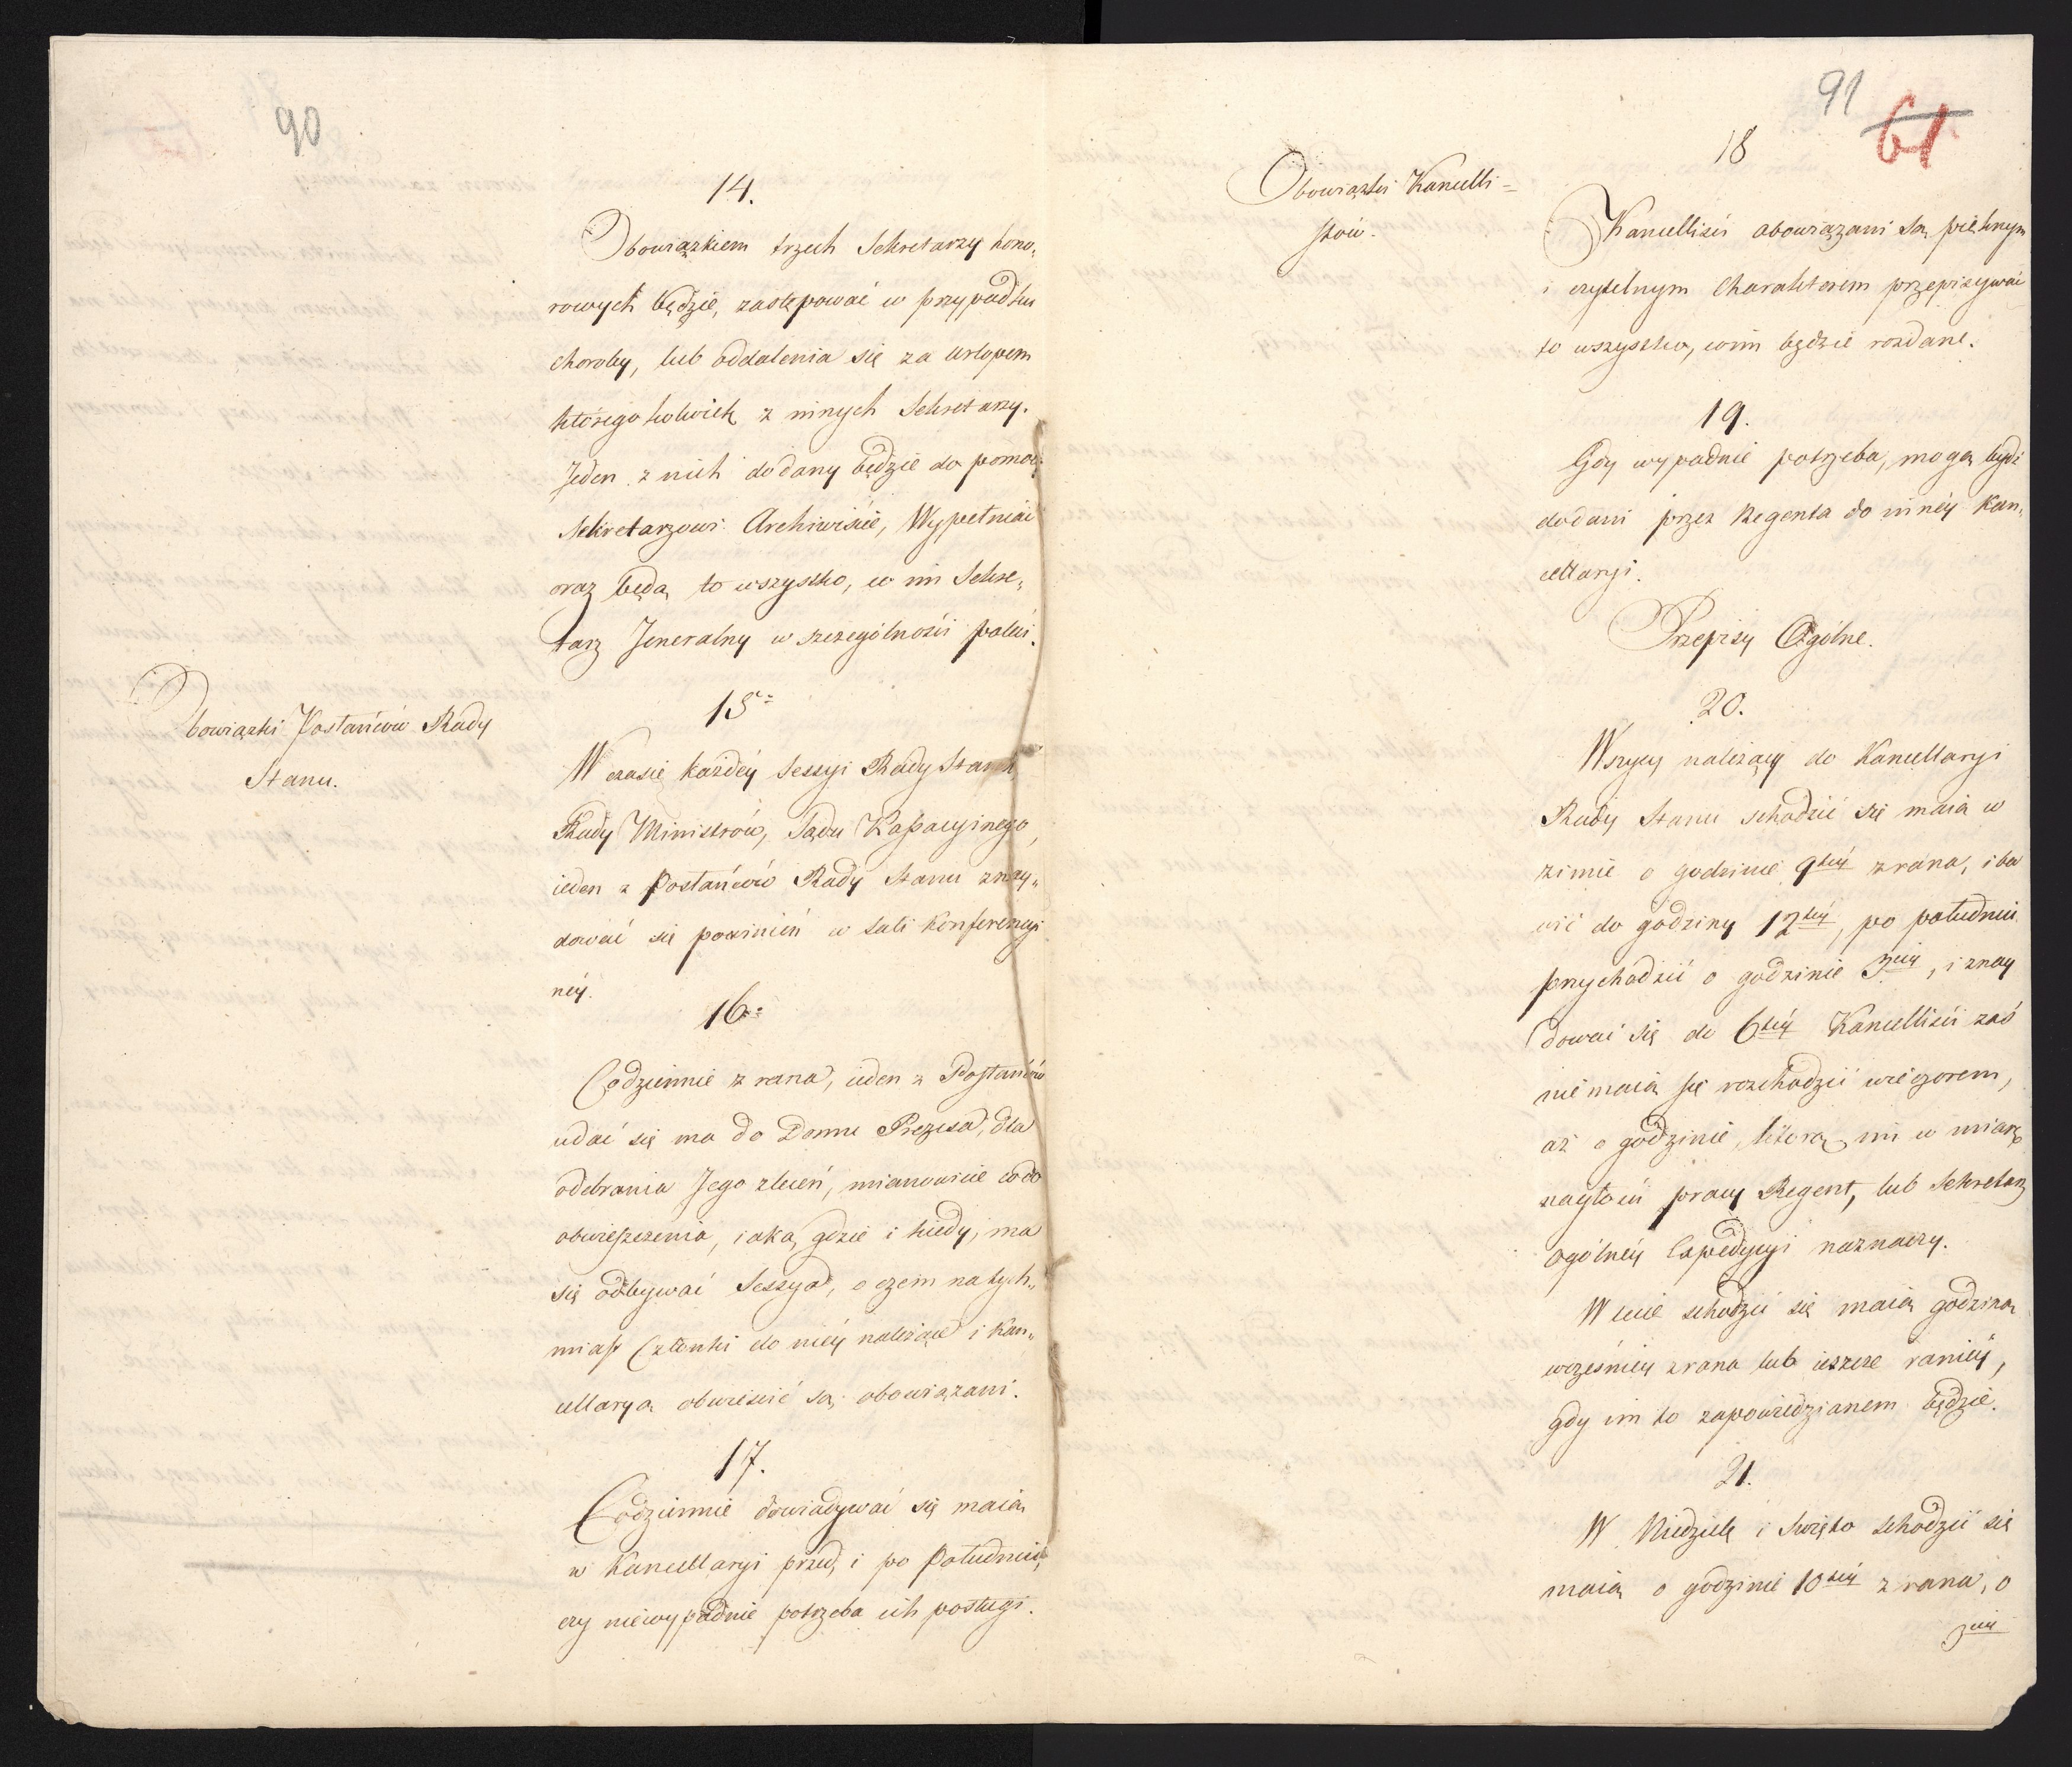 90
14.
Obowiązkiem trzech Sekretarzy hono„
rowych będzie, zastępować w przypadku
choroby, lub oddalenia się za urlopem
któregokolwiek z innych Sekretarzy.
Jeden z nich dodany będzie do pomocy
Sekretarzowi Archiwiście, Wypełniać
oraz będą to wszystko, co im Sekre„
tarz Jeneralny w szczególności poleci.
Obowiązki Posłańców Rady
Stanu.
15.
W czasie każdéy Sessyi Rady Stanu
Rady Ministrów, Sądu Kassacyinego,
ieden z Posłańców Rady Stanu znay„
dować się powinień w Sali Konferencyi
néy.
16.
Codziennie z rana, ieden z Posłańców
udać się ma do Domu Prezesa, dla
odebrania Jego zleceń, mianowicie co do
obwieszczenia, iaka, gdzie i kiedy, ma
się odbywać Sessya, o czem natych„
miast Członki do niéy należące i Kan„
cellaryą obwieścić są obowiązani.
17.
Codziennie dowiadywać się maią
w Kancellaryi przed, i po Południu,
czy niewypadnie potrzeba ich posługi.
91
61
Obowiązki Kancelli=
stów.
18
Kancelliści obowiązani są pięknym
i czytelnym Charakterem przepisywać
to wszystko, co im będzie rozdane.
19.
Gdy wypadnie potrzeba, mogą bydź
dodani przez Regenta do innéy Kan„
cellaryi.
Przepisy Ogólne.
20.
Wszyscy należący do Kancellaryi
Rady Stanu schodzić się maią w
zimie o godzinie 9téy z rana, i ba
wić do godziny 12téy, po południu
przychodzić o godzinie 3ciéy, i znay
dować się do 6téy Kancelliści zaś
nie maią się rozchodzić wieczorem,
aż o godzinie, którą im w miarę
nagłości pracy Regent, lub Sekretarz
ogólnéy Expedycyi naznaczy.
W lecie schodzić się maią godziną
wcześniéy z rana lub ieszcze raniéy,
gdy im to zapowiedzianem będzie.
21.
W Niedzielę i Swięto schodzić się
maią o godzinie 10téy z rana, o
3ciéy